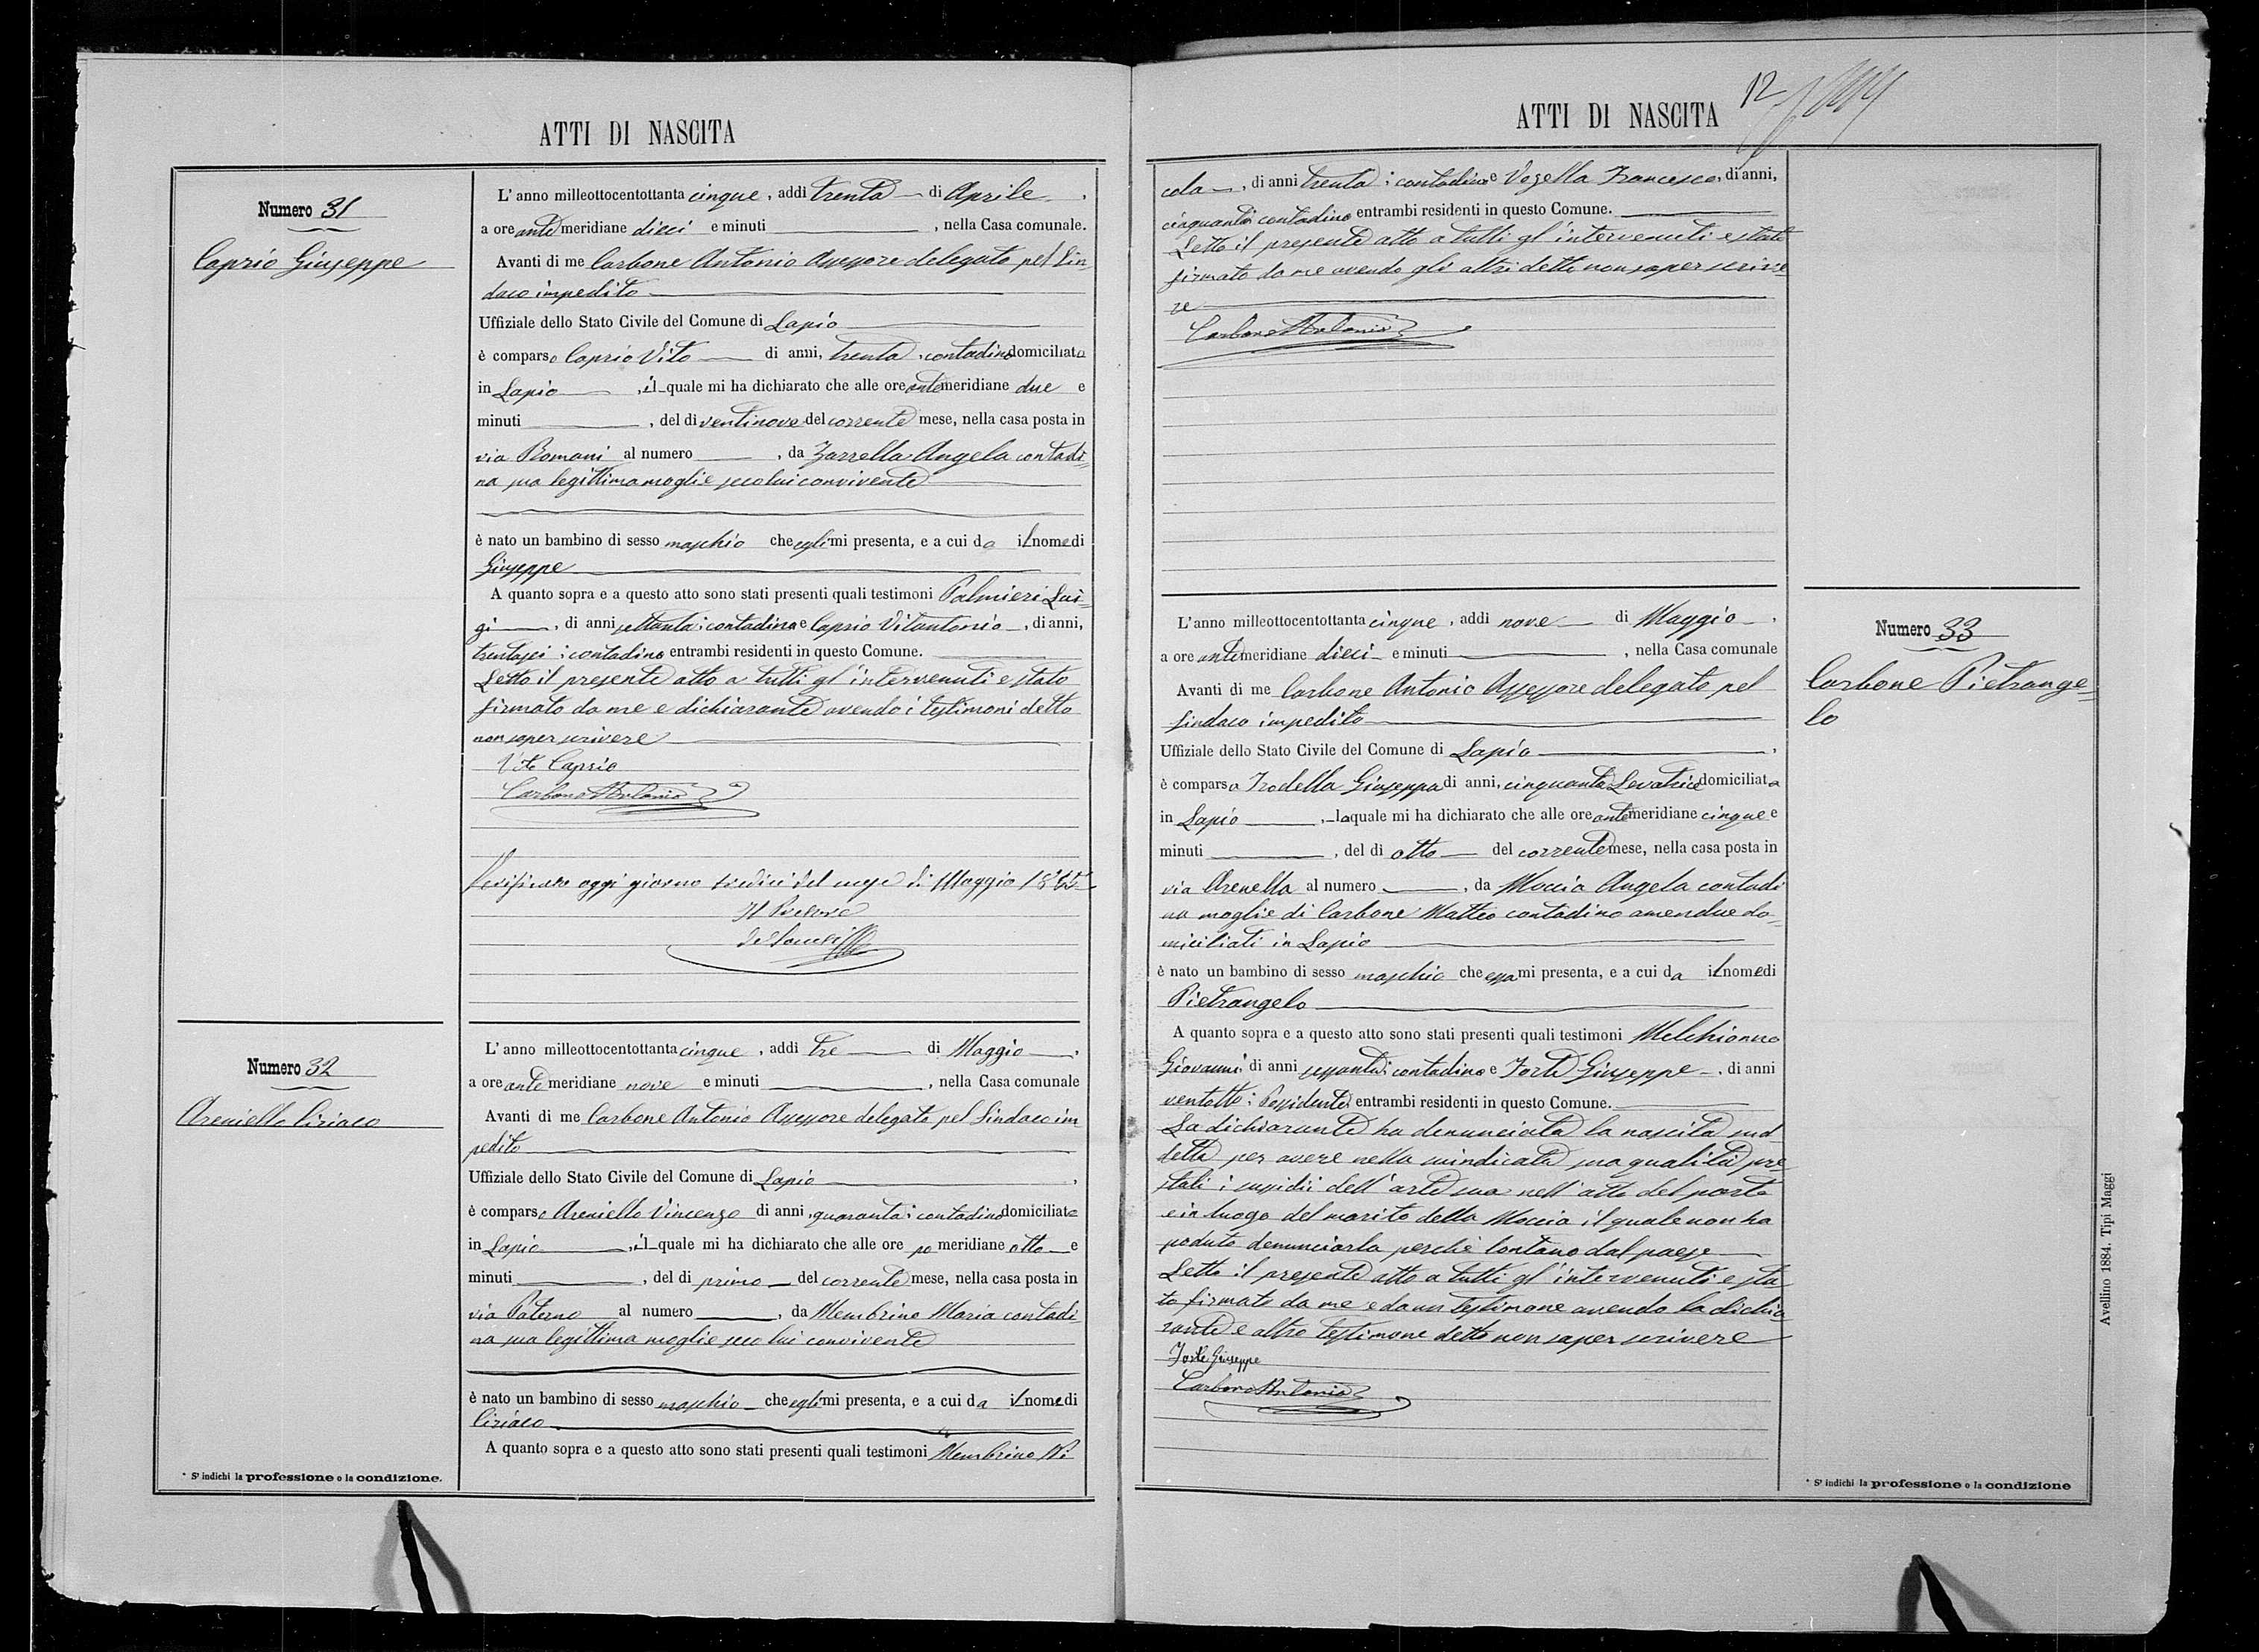 ATTI DI NASCITA
Numero 31
Caprio Giuseppe
L'anno milleottocentottanta cinque, addi trenta di Aprile,
a ore ante meridiane dieci e minuti , nella Casa comunale.
Avanti di me Carbone Antonio Assessore delegato pel Sin=
daco impedito
Uffiziale dello Stato Civile del Comune di Lapio
è comparso Caprio Vito di anni, trenta, contadino domiciliato
in Lapio , il quale mi ha dichiarato che alle ore antemeridiane due e
minuti , del dì ventinove del corrente mese, nella casa posta in
via Romani al numero , da Zarrella Angela contadi=
na sua legittima moglie seco lui convivente
è nato un bambino di sesso maschio che egli mi presenta, e a cui da il nome di
Giuseppe
A quanto sopra e a questo atto sono stati presenti quali testimoni Palmieri Lui=
gi , di anni settanta; contadino e Caprio Vitantonio , di anni,
trentasei; contadino entrambi residenti in questo Comune.
Letto il presente atto a tutti gl'intervenuti e stato
firmato da me e dichiarante avendo i testimoni detto
non saper scrivere
Vito Caprio
Carbone Antonio
Verificato oggi giorno tredici del mese di Maggio 1885
Il Pretore
Numero 32
Areniello Ciriaco
L'anno milleottocentottanta cinque, addi tre di Maggio,
a ore ante meridiane nove e minuti , nella Casa comunale
Avanti di me Carbone Antonio Assessore delegato pel Sindaco im
pedito
Uffiziale dello Stato Civile del Comune di Lapio ,
è comparso Areniello Vincenzo di anni, quaranta; contadino domiciliato
in Lapio , il quale mi ha dichiarato che alle ore po meridiane otto e
minuti , del dì primo del corrente mese, nella casa posta in
via Paterno al numero , da Membrino Maria contadi
na sua legittima moglie seco lui convivente
è nato un bambino di sesso maschio che egli mi presenta, e a cui da il nome di
Ciriaco
A quanto sopra e a questo atto sono stati presenti quali testimoni Membrino Ni
* Si indichi la professione o la condizione.
ATTI DI NASCITA
12
cola , di anni trenta; contadino e Vogella Francesco, di anni,
cinquanta contadino entrambi residenti in questo Comune.
Letto il presente atto a tutti gl'intervenuti e stato
firmato da me avendo gli altri detto non saper scrive
re
Carbone Antonio
L'anno milleottocentottanta cinque, addi nove di Maggio,
a ore antimeridiane dieci e minuti , nella Casa comunale
Avanti di me Carbone Antonio Assessore delegato pel
Sindaco impedito
Uffiziale dello Stato Civile del Comune di Lapio ,
è comparsa Irodella Giuseppa di anni, cinquanta Levatrice domiciliata
in Lapio , la quale mi ha dichiarato che alle ore antemeridiane cinque e
minuti , del dì otto del corrente mese, nella casa posta in
via Arenella al numero , da Moccia Angela contadi
na moglie di Carbone Matteo contadino amendue do=
miciliati in Lapio
è nato un bambino di sesso maschio che essa mi presenta, e a cui da il nome di
Pietrangelo
A quanto sopra e a questo atto sono stati presenti quali testimoni Melchionno
Giovanni di anni sessanta; contadino e Forte Giuseppe , di anni
ventotto; Possidente, entrambi residenti in questo Comune.
La dichiarante ha denunciata la nascita sud
detta per avere nella suindicata sua qualità pre
stati i sussidii dell'arte sua nell'atto del parto
e in luogo del marito della Moccia il quale non ha
poduto denunciarla perchè lontano dal paese
Letto il presente atto a tutti gl'intervenuti e sta
to firmato da me e da un testimone avendo la dichia
rante e altro testimone detto non saper scrivere
Forte Giuseppe
Carbone Antonio
Numero 33
Carbone Pietrange=
lo
* Si indichi la professione o la condizione
Avellino 1884. Tipi Maggi